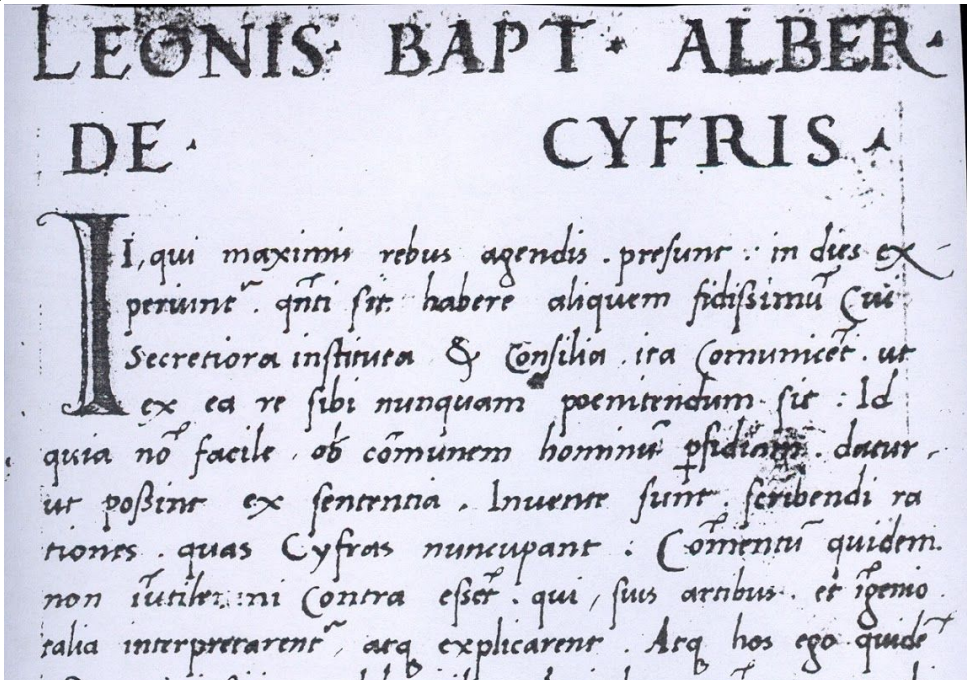 LEONIS · BAPT · ALBER ·
DE · CYFRIS ·
II, qui maximis rebus agendis . presunt : in dies ex-
periunt᷑ . qñti sit habere aliquem fidissimũ Cui
Secretiora instituta & Consilia . ita Comunicẽt . ut
ex ea re sibi nunquam poenitendum sit : Id
quia nõ facile . ob cõmunem hominũ ꝑfidiam . datur ,
ut possint ex sententia . Invente sunt . scribendi ra
tiones . quas Cyfras nuncupant : Cõmentũ quidem.
non iũtile : ni Contra essẽt . qui , suis artibus . et ĩgenio
talia interpretarent᷑ , atq explicarent . Atq hos ego quidẽ